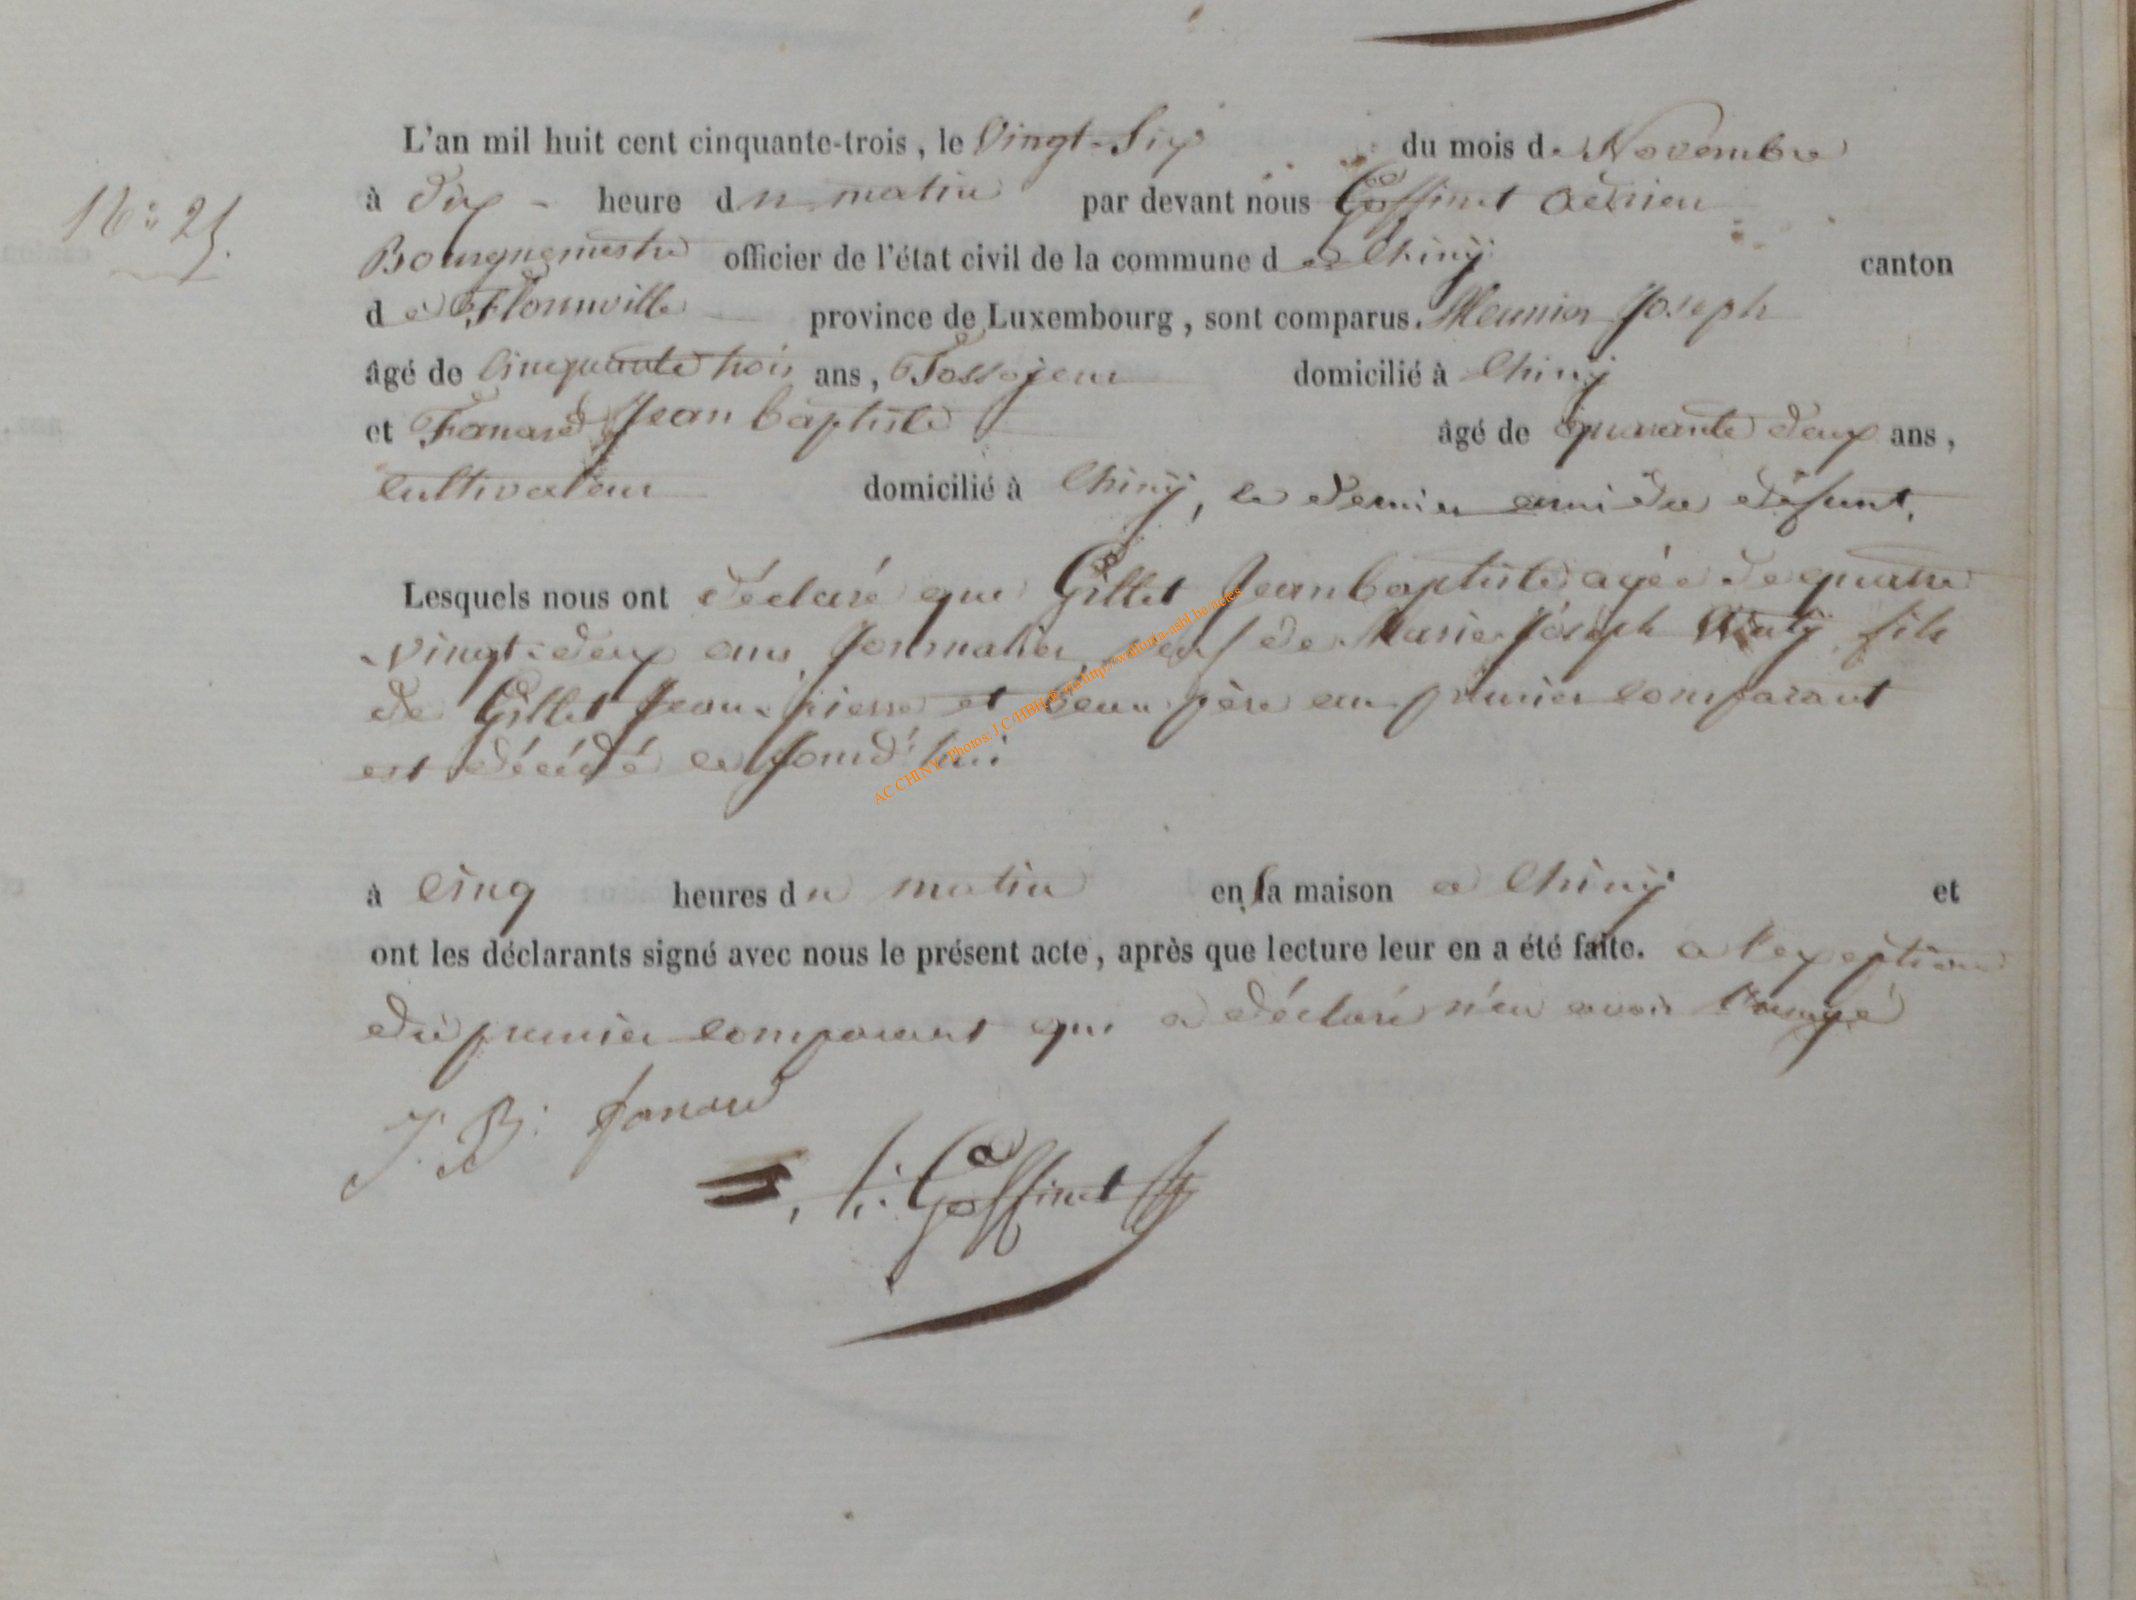 L'an mil huit cent cinquante-trois, le Vingt-Six du mois de Novembre
N° 25. à dix - heure du matin par devant nous Goffinet Adrien
Bourguemestre officier de l'état civil de la commune de Chiny canton
de Florenville province de Luxembourg, sont comparus Meunier Joseph
âgé de Cinquante trois ans, Fossoyeur domicilié à Chiny
et Fanard Jean baptiste âgé de quarante deux ans,
Cultivateur domicilié à Chiny, le dernier ami du défunt,
Lesquels nous ont déclaré que Gillet Jean baptiste agée de quatre
vingt-deux ans Journalier, veuf de Marie Joseph fils
de Gillet Jean-pierre et beau père au premier comparant
est décédé ce jourd'hui
à Cinq heures du matin en sa maison a Chiny et
ont les déclarants signé avec nous le présent acte, après que lecture leur en a été faite. a l'exeption
du premier comparant qui a déclaré n'en avoir l'usage
J. B. fanard
Goffinet
AC CHINY - Photos J C HBH@ via http://wallonia-asbl.be/actes